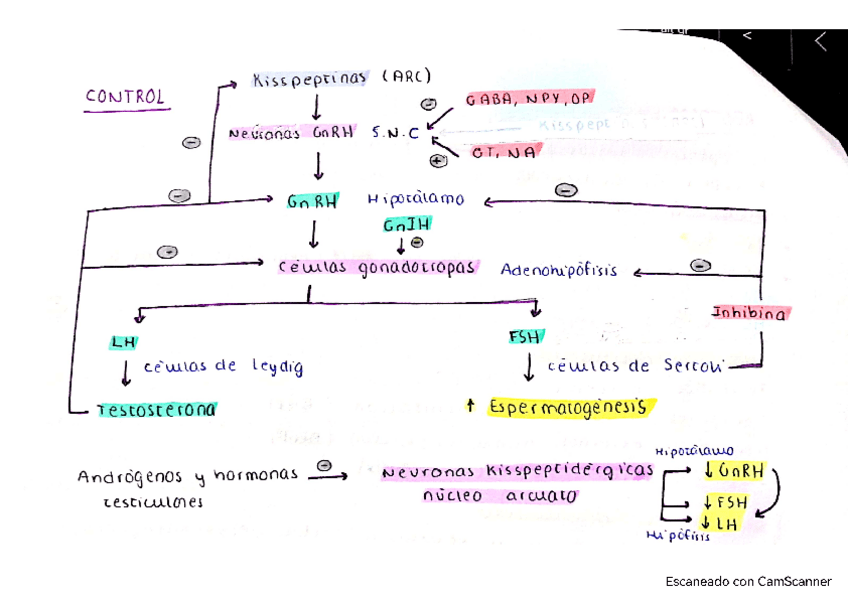 CONTROL
Kisspeptinas (ARC)
⊖ GABA, NPY, OP
Neuronas GnRH S.N.C
⊕ GT, NA
⊖
⊖ GnRH Hipotálamo ⊖
GnIH
⊖
⊖ células gonadotropas Adenohipófisis ⊖
Inhibina
LH FSH
células de Leydig células de Sertoli
Testosterona ↑ Espermatogénesis
Andrógenos y hormonas testiculares ⊖ → Neuronas Kisspeptidérgicas núcleo arcuato
Hipotálamo
↓ GnRH
↓ FSH
↓ LH
Hipófisis
Escaneado con CamScanner